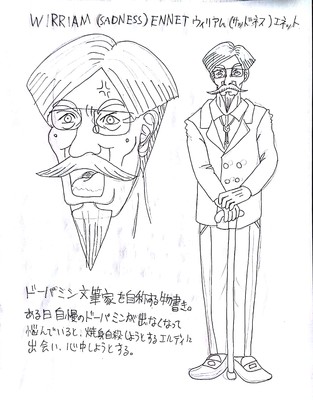 W!RRIAM (SADNESS) ENNET ウィリアム(サッドネス)エネット
ドーパミン文筆家を自称する物書き。
ある日自慢のドーパミンが出なくなって
悩んでいると、焼身自殺しようとするエルディに
出会い、心中しようとする。